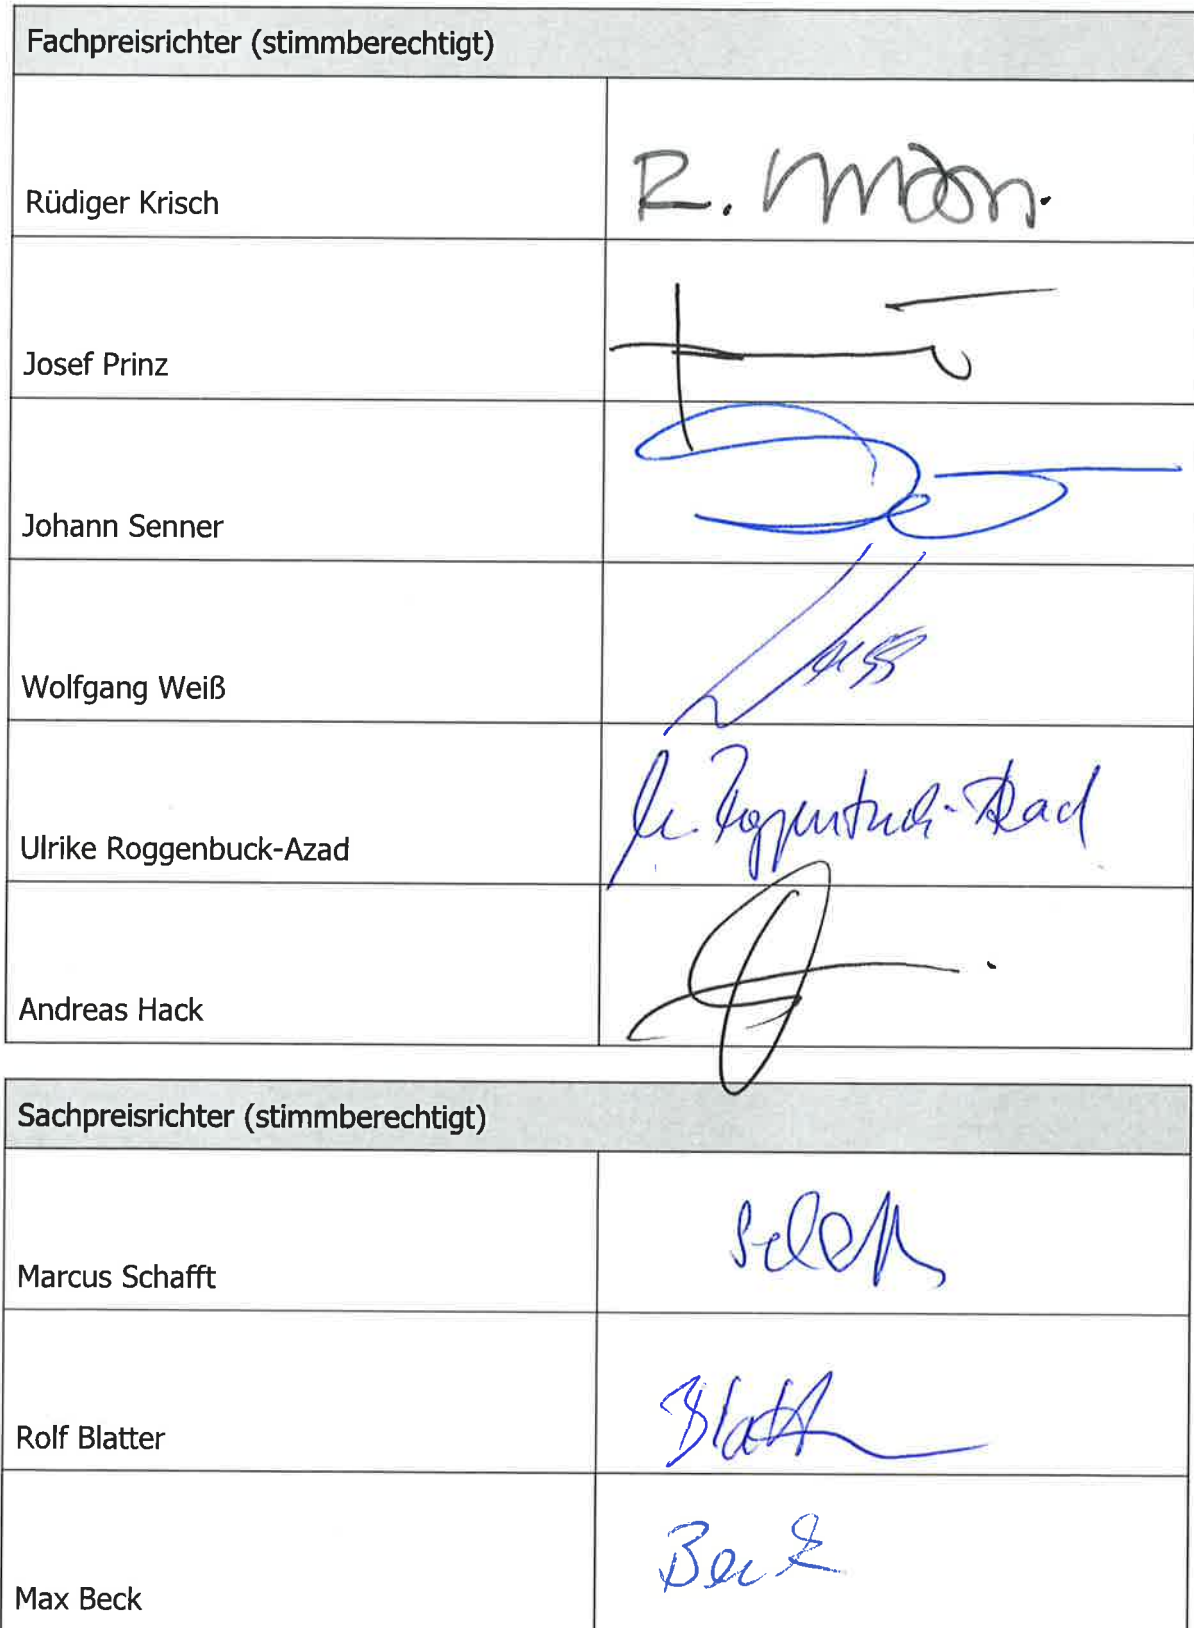 Fachpreisrichter (stimmberechtigt)
Rüdiger Krisch R.
Josef Prinz
Johann Senner
Wolfgang Weiß
Ulrike Roggenbuck-Azad
Andreas Hack
Sachpreisrichter (stimmberechtigt)
Marcus Schafft
Rolf Blatter
Max Beck Beck